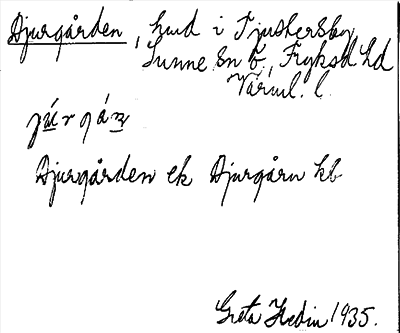 Djurgården, hmd i Tjustersby
Sunne sn Ö, Fryksd hd
Värml. l.
júrgán
Djurgården ek Djurgårn kb
Greta Hedin 1935.